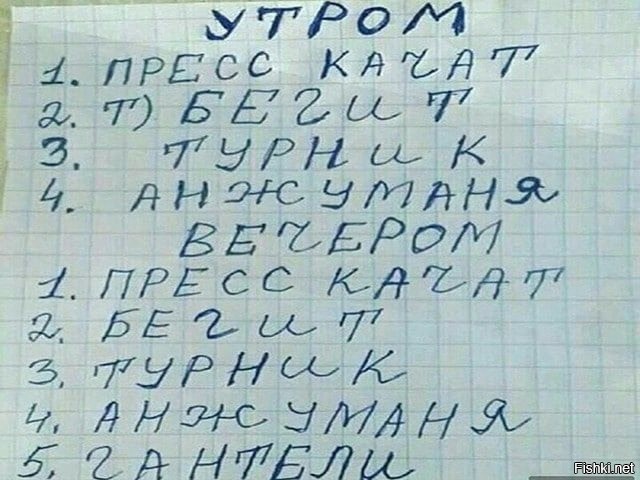 УТРОМ
1. ПРЕСС КАЧАТ
2. Т) БЕГИТ
3. ТУРНИК
4. АНЖУМАНЯ
ВЕЧЕРОМ
1. ПРЕСС КАЧАТ
2. БЕГИТ
3. ТУРНИК
4. АНЖУМАНЯ
5. ГАНТЕЛИ
Fishki.net